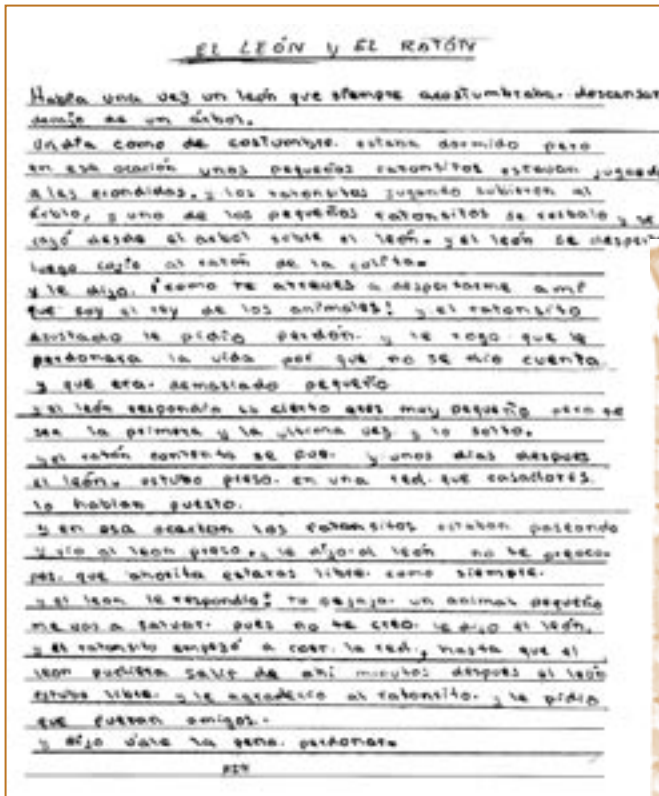 EL LEÓN y EL RATÓN
Había una vez un león que siempre acostumbraba. descansar
devajo de un árbol.
un día como de costumbre. estana dormido pero
en esa ocación unos pequeños ratonsitos estavan jugando
a las econdidas. y los ratonsitos jugando subieron al
árblo, y uno de los pequeños ratonsitos se resbalo y se
cayó desde el arbol sobre el león. y el león se desperto
luego cojio al ratón de la colita.
y le dijo. ¡como te atreves a despertarme a mí
que soy el rey de los animales! y el ratonsito
asustado le pidio perdón. y le rogo que le
perdonara la vida por que no se dio cuenta
y que era. demasiado pequeño
y el león respondio es cierto eres muy pequeño pero que
sea la primera y la ultima vez y lo solto.
y el ratón contento se fue. y unos días despues
el león. estubo preso. en una red. que casadores.
lo habían puesto.
y en esa ocacion los ratonsitos estaban paseando
y vio al leon preso. y le dijo al león no te preocu-
pes. que ahorita estaras libre. como siempre.
y el leon le respondio: tu jajaja. un animal pequeño
me vas a salvar. pues no te creo. le dijo el león.
y el ratonsito empezó a coer. la red. y hasta que el
leon pudiera salir de ahi minutos despues el león
estubo libre. y le agradecio al ratonsito. y le pidio
que fueran amigos.
y dijo vale la pena. perdonar.
FIN